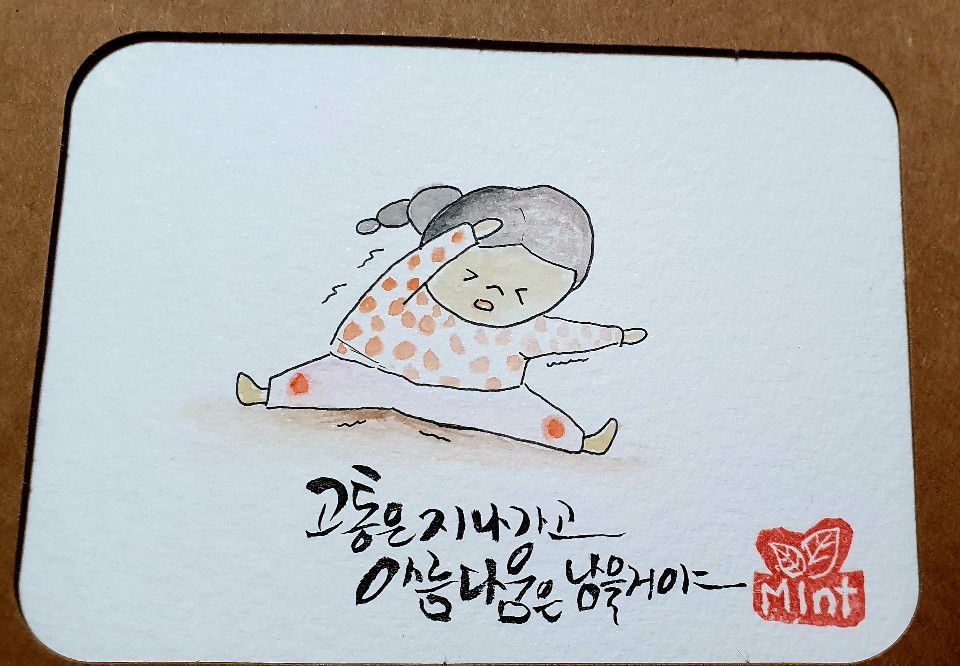 고통은 지나가고
아름다움은 남을거야
Mint